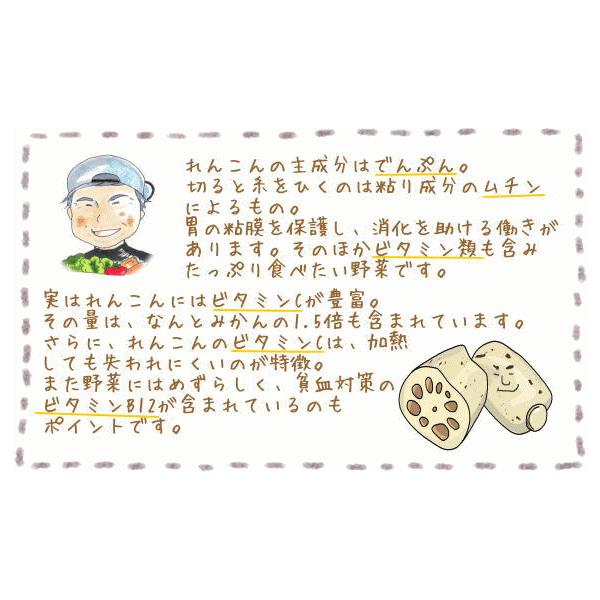 れんこんの主成分はでんぷん。
切ると糸をひくのは粘り成分のムチン
によるもの。
胃の粘膜を保護し、消化を助ける働きが
あります。そのほかビタミン類も含み
たっぷり食べたい野菜です。
実はれんこんにはビタミンCが豊富。
その量は、なんとみかんの1.5倍も含まれています。
さらに、れんこんのビタミンCは、加熱
しても失われにくいのが特徴。
また野菜にはめずらしく、貧血対策の
ビタミンB12が含まれているのも
ポイントです。